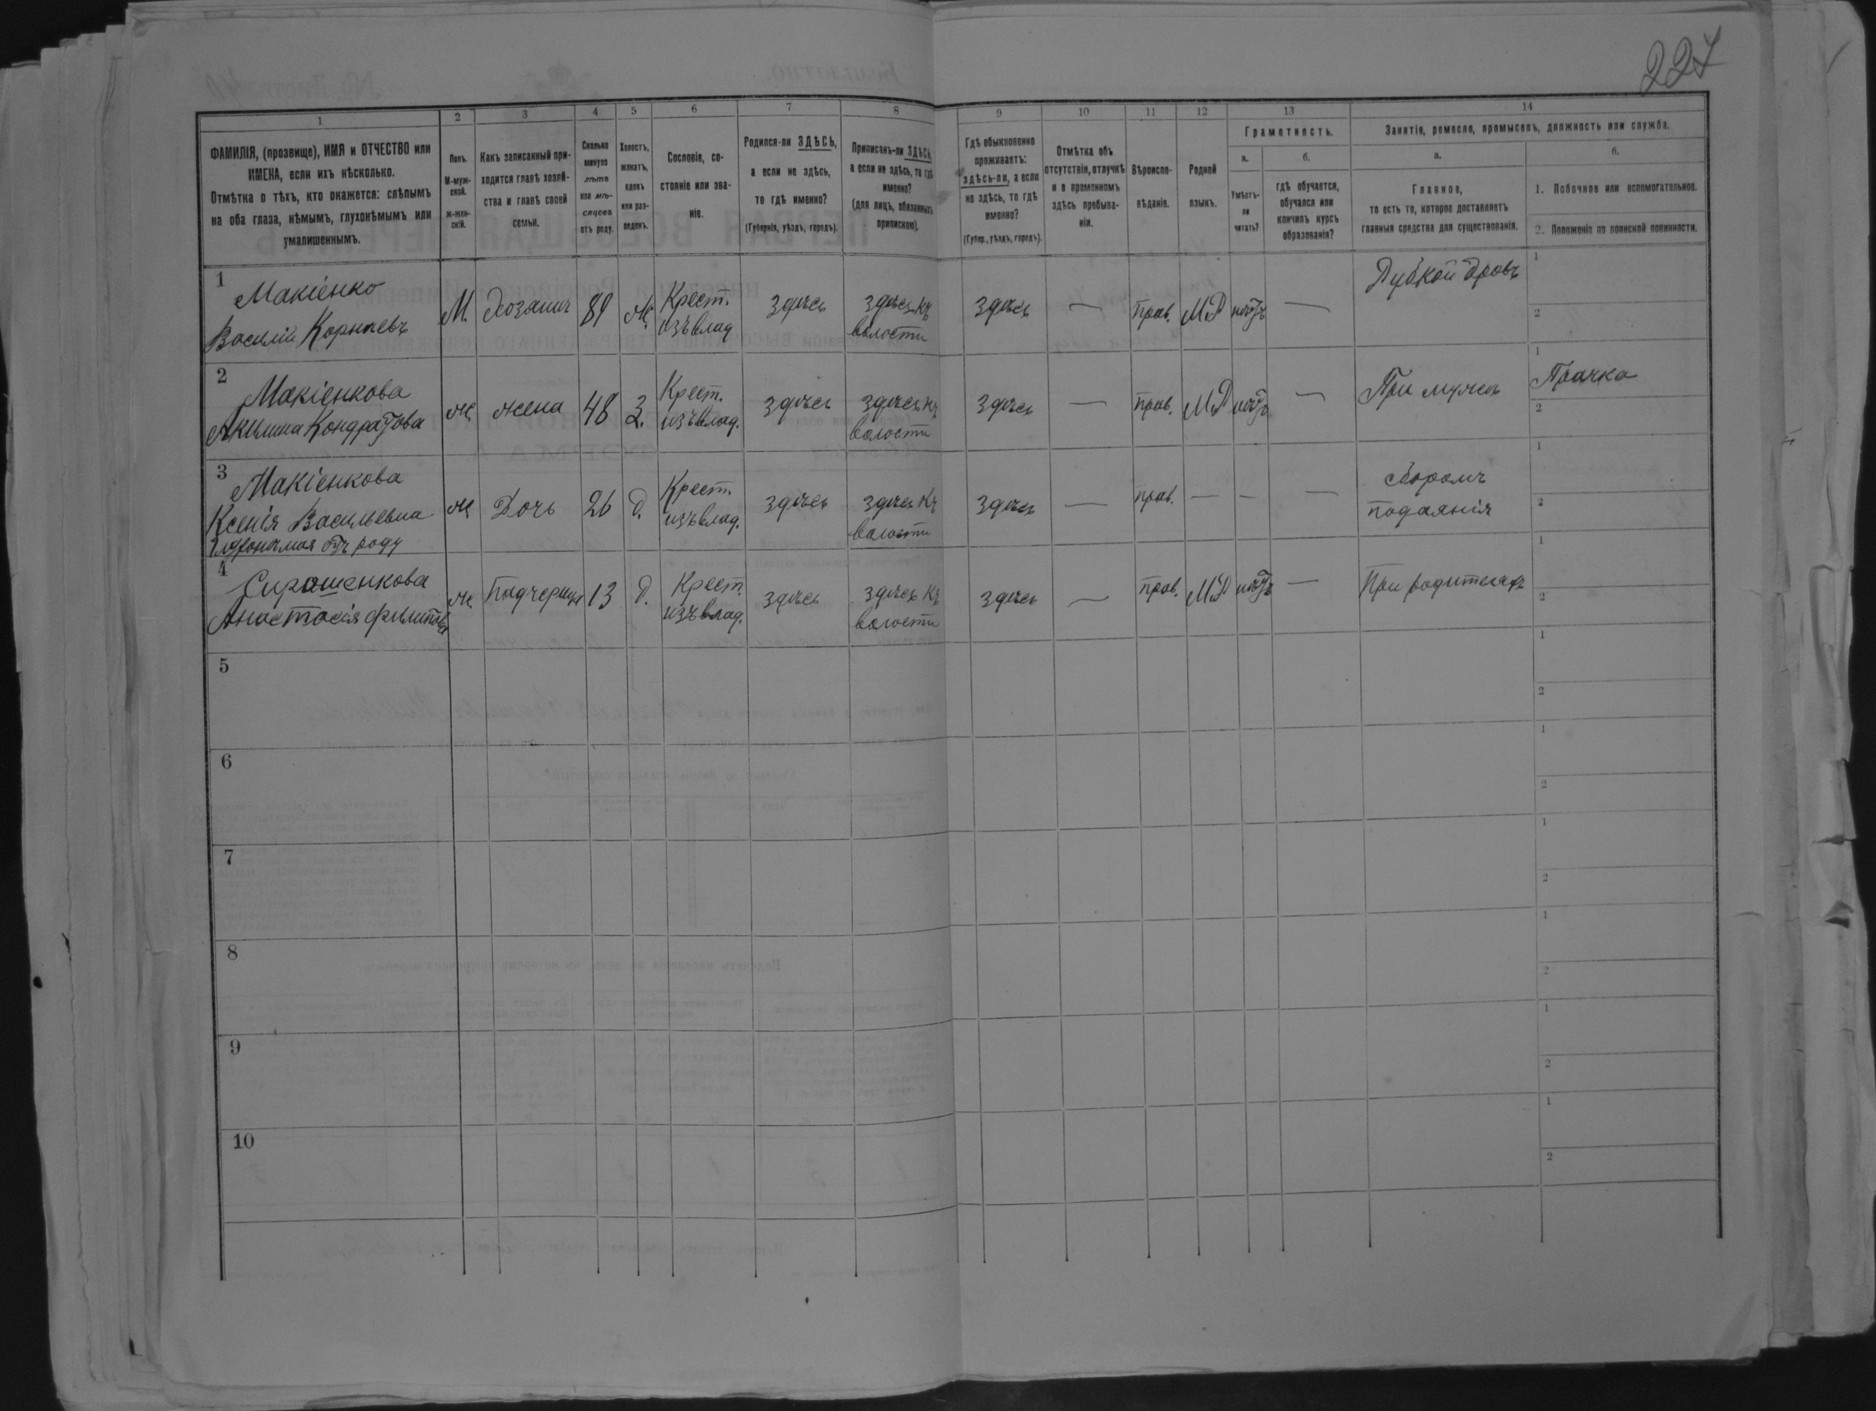 227
1
2
3
4
5
6
7
8
9
10
11
12
13
14
ФАМИЛІЯ, (прозвище), ИМЯ и ОТЧЕСТВО или
ИМЕНА, если ихъ нѣсколько.
Отмѣтка о тѣхъ, кто окажется: слѣпымъ
на оба глаза, нѣмымъ, глухонѣмымъ или
умалишеннымъ.
Полъ.
М-муж-
ской.
ж-жен-
скій.
Какъ записанный при-
ходится главѣ хозяй-
ства и главѣ своей
семьи.
Сколько
минуло
лѣтъ
или мѣ-
сяцевъ
отъ роду.
Холостъ,
женатъ,
вдовъ
или раз-
веденъ.
Сословіе, со-
стояніе или зва-
ніе.
Родился-ли ЗДѢСЬ,
а если не здѣсь,
то гдѣ именно?
(Губернія, уѣздъ, городъ).
Приписанъ-ли ЗДѢСЬ,
а если не здѣсь, то гдѣ
именно?
(для лицъ, обязанныхъ
припискою).
Гдѣ обыкновенно
проживаетъ:
здѣсь-ли, а если
не здѣсь, то гдѣ
именно?
(Губер., уѣздъ, городъ).
Отмѣтка объ
отсутствіи, отлучкѣ
и о временномъ
здѣсь пребыва-
ніи.
Вѣроиспо-
вѣданіе.
Родной
языкъ.
Грамотность.
а.
б.
Умѣетъ-
ли
читать?
гдѣ обучается,
обучался или
кончилъ курсъ
образованія?
Занятія, ремесло, промыселъ, должность или служба.
а.
б.
Главное,
то есть то, которое доставляетъ
главныя средства для существованія.
1. Побочное или вспомогательное.
2. Положеніе по воинской повинности.
1
Макіенко
Василій Корнѣевъ
М.
Хозяинъ
ж.
Крест.
изъ влад
здѣсь
здѣсь къ
волости
здѣсь
—
прав.
МР
нѣтъ
—
Рубкой дровъ
1
2
2
Макіенкова
Акилина Кондратова
ж
жена
48
З.
Крест.
изъ влад.
здѣсь
здѣсь къ
волости
здѣсь
—
прав.
МР
нѣтъ
—
При мужѣ
1
Прачка
2
3
Макіенкова
Ксенія Васильевна
глухонѣмая отъ роду
ж
Дочь
26
д.
Крест.
изъ влад.
здѣсь
здѣсь къ
волости
здѣсь
—
прав.
—
—
—
сборомъ
подаянія
1
2
4
Сирошенкова
Анастасія Филипова
ж.
Падчерица
13
д.
Крест.
изъ влад.
здѣсь
здѣсь къ
волости
здѣсь
—
прав.
МР
нѣтъ
—
При родителяхъ
1
2
5
1
2
6
1
2
7
1
2
8
1
2
9
1
2
10
1
2